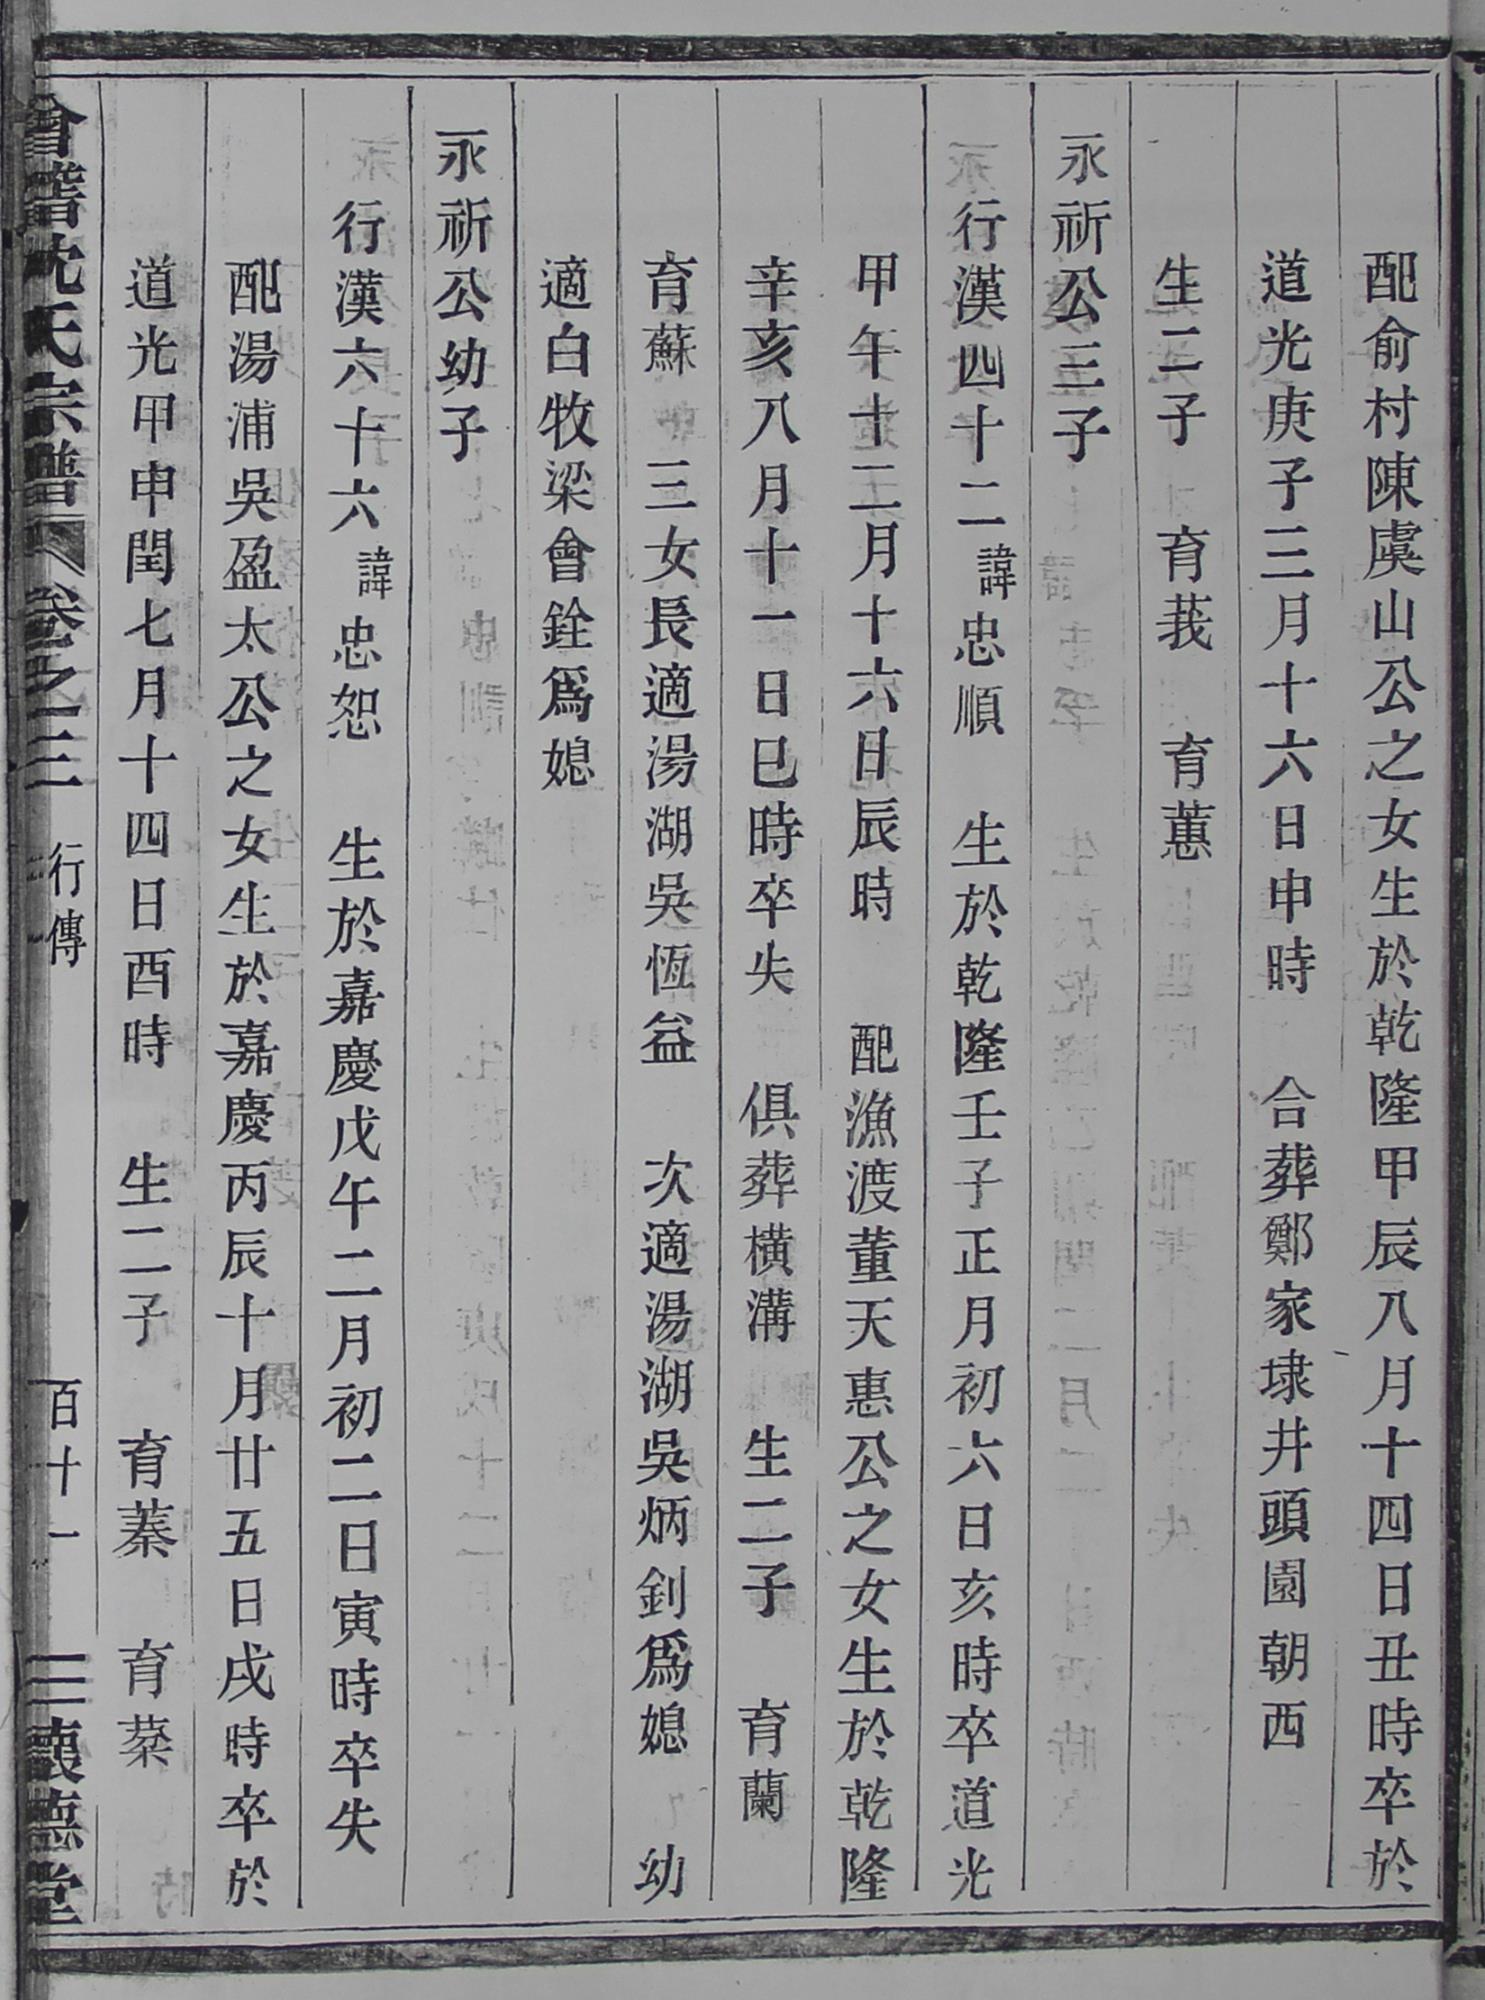 配俞村陳虞山公之女生於乾隆甲辰八月十四日丑時卒於
道光庚子三月十六日申時 合葬鄭家埭井頭園朝西
生二子 育莪 育蕙
永祈公三子
行漢四十二諱忠順 生於乾隆壬子正月初六日亥時卒道光
甲午十二月十六日辰時 配漁渡董天惠公之女生於乾隆
辛亥八月十一日巳時卒失 俱葬橫溝 生二子 育蘭
育蘇 三女長適湯湖吳恆益 次適湯湖吳炳釗爲媳 幼
適白牧梁會銓爲媳
永祈公幼子
行漢六十六諱忠恕 生於嘉慶戊午二月初二日寅時卒失
配湯浦吳盈太公之女生於嘉慶丙辰十月廿五日戌時卒於
道光甲申閏七月十四日酉時 生二子 育蓁 育蔡
會稽沈氏宗譜 卷之三 行傳 百十一 三懷德堂